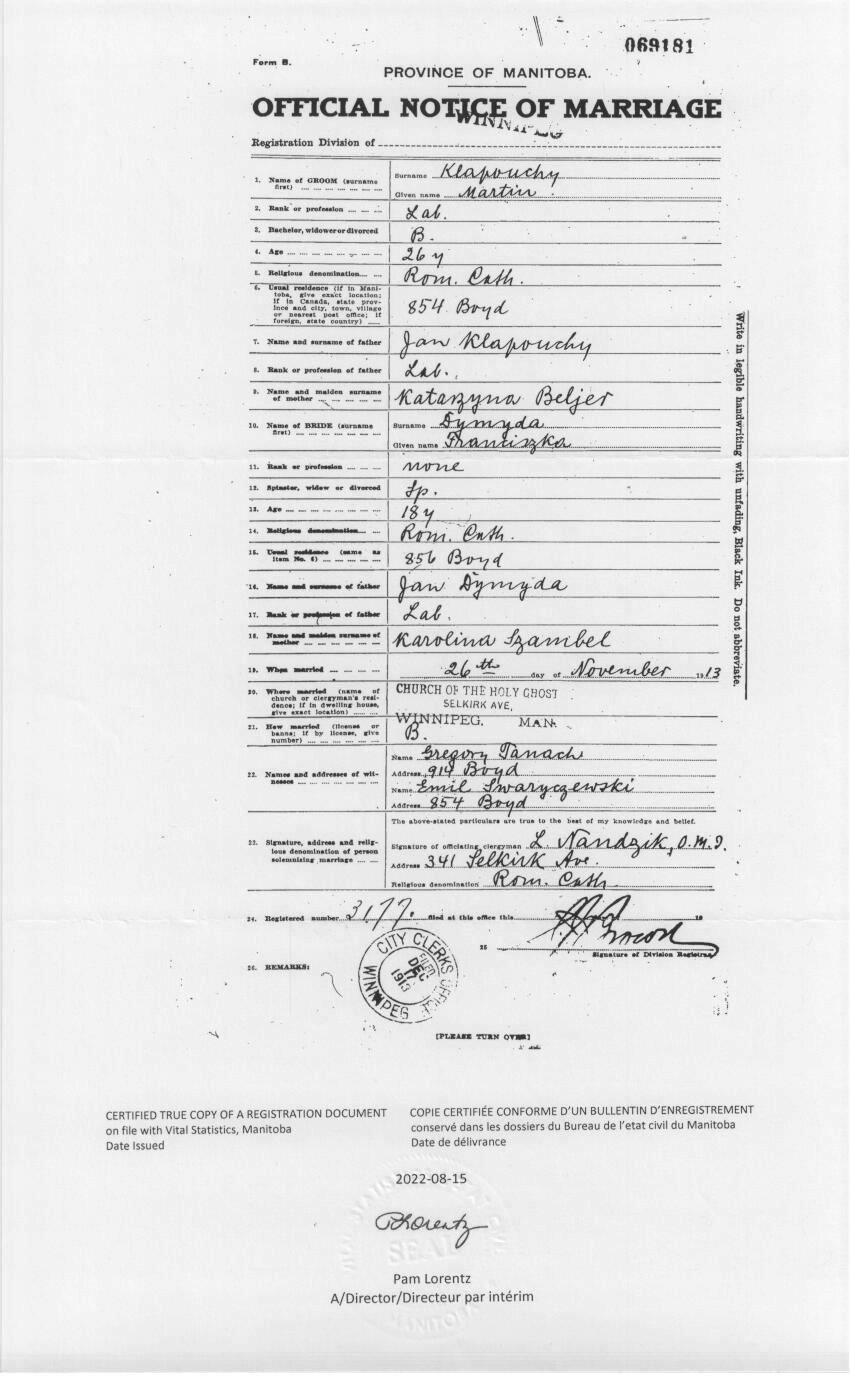 069181
Form B.
PROVINCE OF MANITOBA.
OFFICIAL NOTICE OF MARRIAGE
WINNIPEG
Registration Division of
1. Name of GROOM (surname first) Surname Klapouchy
Given name Martin
2. Rank or profession Lab.
3. Bachelor, widower or divorced B.
4. Age 26 y
5. Religious denomination Rom. Cath.
6. Usual residence (if in Manitoba, give exact location; if in Canada, state province and city, town, village or nearest post office; if foreign, state country) 854 Boyd
7. Name and surname of father Jan Klapouchy
8. Rank or profession of father Lab.
9. Name and maiden surname of mother Katarzyna Beljer
10. Name of BRIDE (surname first) Surname Dymyda
Given name Franciszka
11. Rank or profession none
12. Spinster, widow or divorced Sp.
13. Age 18 y
14. Religious denomination Rom. Cath.
15. Usual residence (same as item No. 6) 856 Boyd
16. Name and surname of father Jan Dymyda
17. Rank or profession of father Lab.
18. Name and maiden surname of mother Karolina Szambel
19. When married 26th day of November 1913
20. Where married (name of church or clergyman's residence; if in dwelling house, give exact location) CHURCH OF THE HOLY GHOST
SELKIRK AVE,
WINNIPEG, MAN.
21. How married (license or banns; if by license, give number) B.
22. Names and addresses of witnesses
Name Gregory Tanach
Address 914 Boyd
Name Emil Swaryczewski
Address 854 Boyd
The above-stated particulars are true to the best of my knowledge and belief.
23. Signature, address and religious denomination of person solemnizing marriage
Signature of officiating clergyman L. Nandzik, O.M.I.
Address 341 Selkirk Ave.
Religious denomination Rom. Cath
24. Registered number 3177. filed at this office this 19
25
Signature of Division Registrar
26. REMARKS:
CITY CLERKS OFFICE
FILED
DEC 17 1913
WINNIPEG
[PLEASE TURN OVER]
Write in legible handwriting with unfading, Black Ink. Do not abbreviate.
CERTIFIED TRUE COPY OF A REGISTRATION DOCUMENT
on file with Vital Statistics, Manitoba
Date Issued
COPIE CERTIFIÉE CONFORME D'UN BULLETIN D'ENREGISTREMENT
conservé dans les dossiers du Bureau de l'etat civil du Manitoba
Date de délivrance
2022-08-15
PLorentz
SEAL
MANITOBA
Pam Lorentz
A/Director/Directeur par intérim